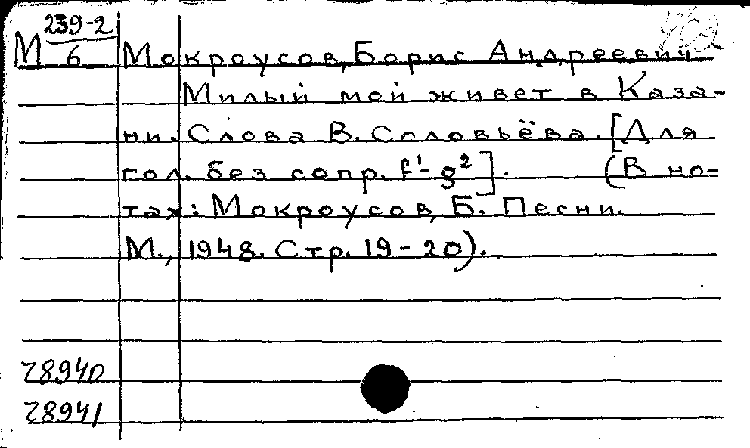 М 239-2/6 Мокроусов, Борис Андреевич
Милый мой живет в Каза-
ни. Слова В. Соловьёва. [Для
гол. без сопр. f¹-g²]. (В но-
тах: Мокроусов, Б. Песни.
М., 1948. Стр. 19-20).
28940
28941